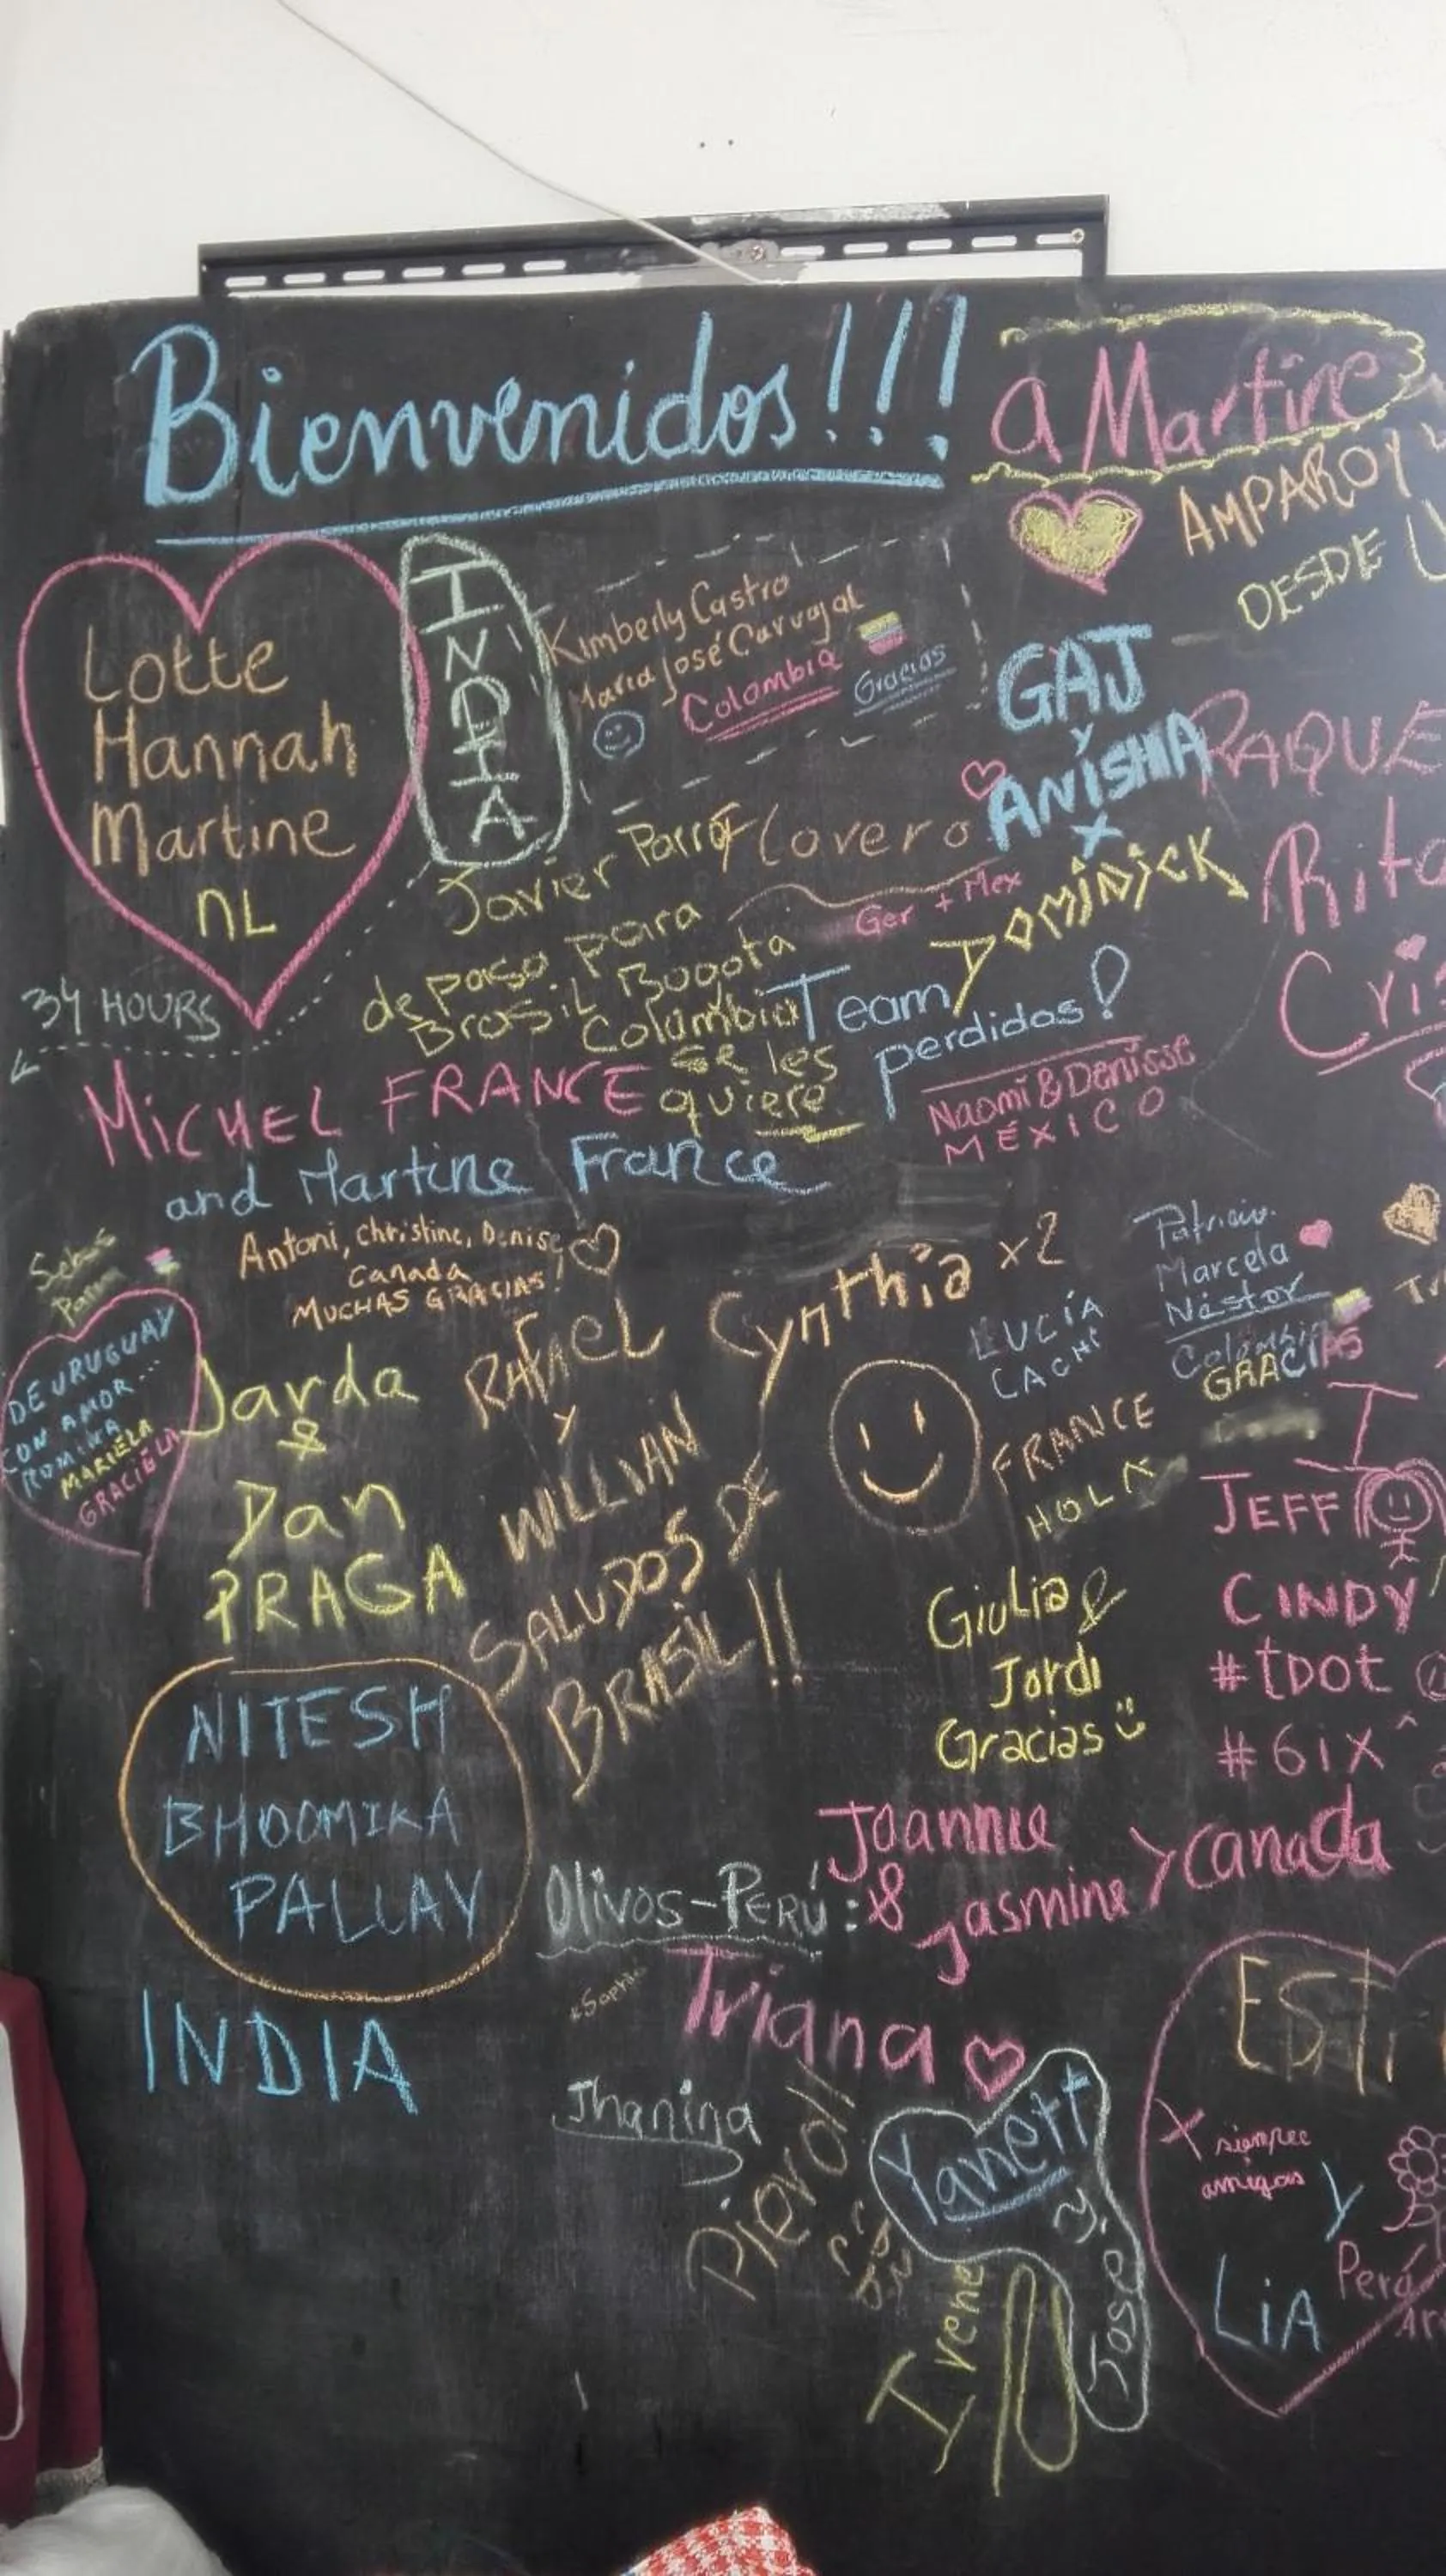 Bienvenidos!!!
a Martine
AMPARO Y
DESDE U
Lotte
Hannah
Martine
NL
34 HOURS
INDIA
Kimberly Castro
Maria José Carvajal
Colombia
Gracias
GAJ
y
ANISHA
X
RAQUE
Javier Parra
de paso para
Brasil Bogota
Columbia
se les
quiere
Flovero
Ger + Mex
DOMINICK
Team
perdidos!
Rita
Cris
Naomi & Denisse
MÉXICO
MICHEL FRANCE
and Martine France
Antoni, Christine, Denise
Canada
MUCHAS GRACIAS!
Cynthia x2
Patricio.
Marcela
Néstor
Colombia
GRACIAS
LUCÍA
CACHI
FRANCE
HOLA
DE URUGUAY
CON AMOR...
ROMINA
MARIELA
GRACIELA
Jarda
&
Dan
PRAGA
RAFAEL
y
WILLIAN
SALUDOS DE
BRASIL!!
JEFF
CINDY
#tDOT
#6ix
Giulia &
Jordi
Gracias
NITESH
BHOOMIKA
PALLAV
INDIA
Joannie
& Jasmine > Canada
Olivos-PERÚ:
Triana
Jhanina
Pieroll
Yanett
y
Jose
Irene
EST
siempre
amigas
y
LiA
Perú